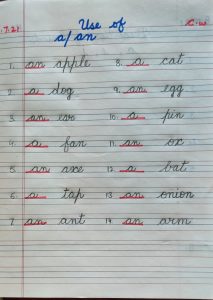 .7.21 Use of C-W
a/an
1. an apple 8. a cat
2. a dog 9. an egg
3. an 10. a pin
4. a fan 11. an ox
5. an axe 12. a bat
6. a tap 13. an onion
7. an ant 14. an arm